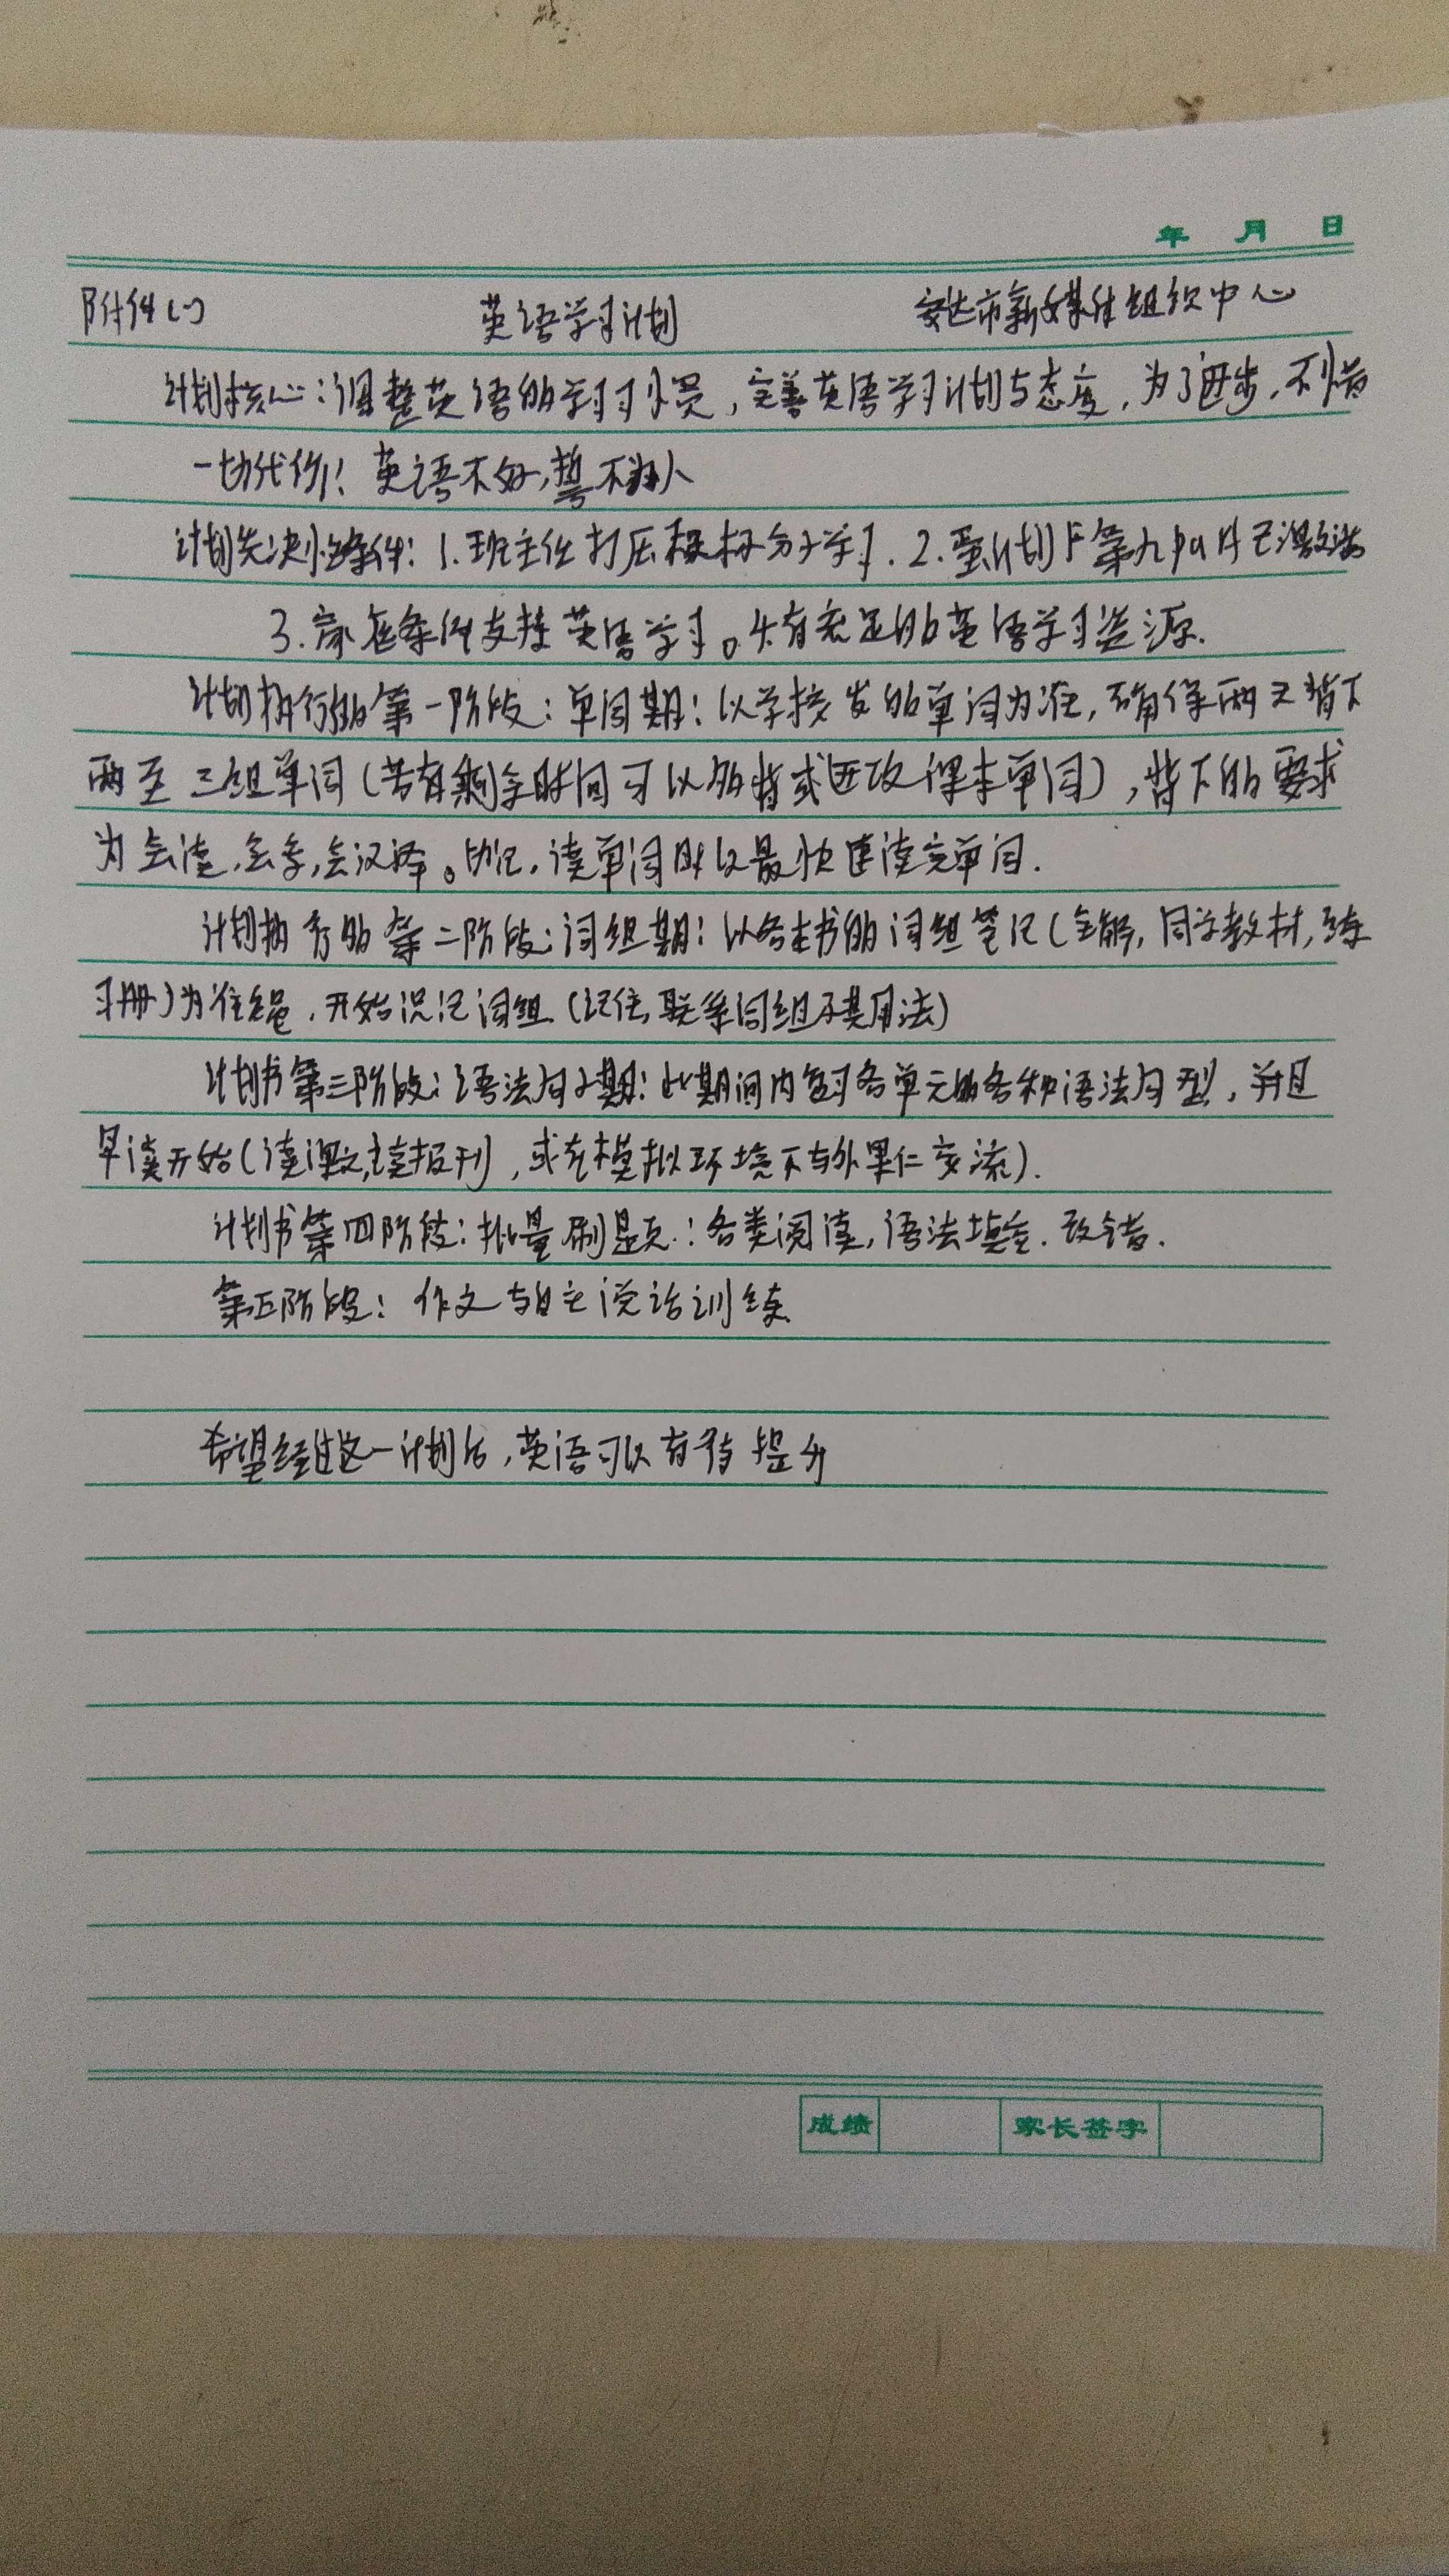 年 月 日
附件(一) 英语学习计划 安达市新媒体组织中心
计划核心:调整英语的学习习惯,完善英语学习计划与态度,为了进步,不惜
一切代价!英语不好,誓不为人
计划先决性条件:1.班主任打压 分子学习.2. 计划下第九
3.家庭条件支持英语学习。4.有充足的英语学习资源.
计划执行的第一阶段:单词期:以学校发的单词为准,确保两天背下
两至三组单词(若有剩余时间可以多背或进攻课本单词),背下的要求
为会读,会写,会汉译。切记,读单词时以最快速读完单词.
计划执行的第二阶段:词组期:以各主书的词组笔记(全解,同学教材,练
习册)为准绳,开始识记词组(记住,联系词组及其用法)
计划书第三阶段:语法句子期:此期间内复习各单元的各种语法句型,并且
早读开始(读课文,读报刊,或在模拟环境下与外果仁交流).
计划书第四阶段:批量刷题:各类阅读,语法填空.改错.
第五阶段:作文与自主说话训练
希望经过这一计划后,英语可以有 提升
成绩 家长签字